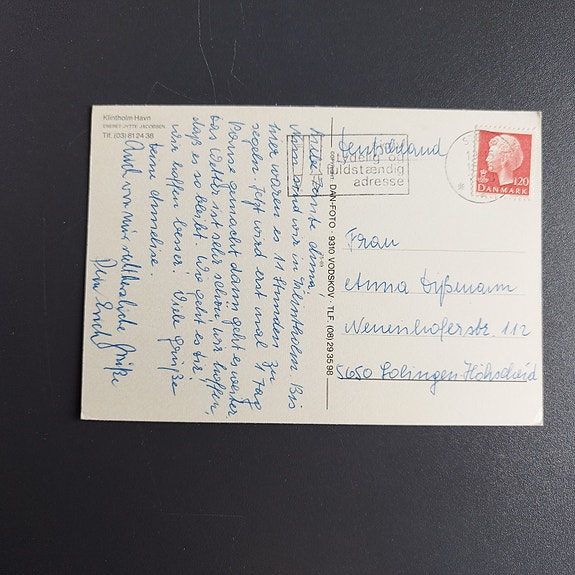 Klintholm Havn
ENERET: JYTTE JACOBSEN
Tlf. (03) 81 24 38
Nun sind wir in Klintholm. Bis
hier waren es 11 Stunden zu
segeln. Jetzt wird erst mal 1 Tag
Pause gemacht dann geht es weiter.
Das Wetter ist sehr schön wir hoffen,
daß es so bleibt. Wie geht es Dir
wir hoffen besser. Viele Grüße
Deine Anneliese.
Auch von mir allherzliche Grüße
Dein Erich
COPYRIGHT: DAN-FOTO · 9310 VODSKOV · TLF. (08) 29 35 98
Deutschland
Tydelig og
fuldstændig
adresse
120
DANMARK
Frau
Anna
Neuenhoferstr. 112
5650 Solingen Höhscheid